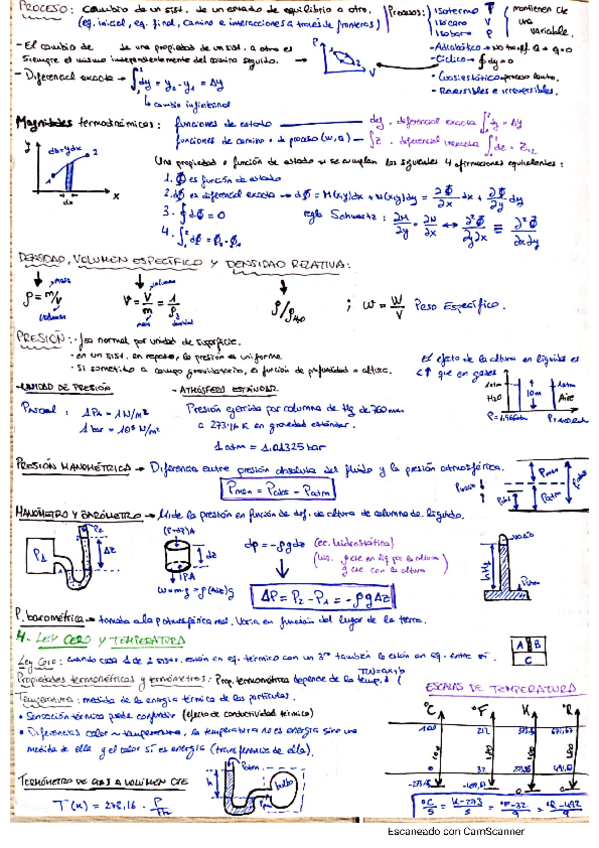 PROCESO: cambio de un sist. de un estado de equilibrio a otro.
(eq. inicial, eq. final, camino e interacciones a través de fronteras)
Procesos: Isotermo T
Isócaro V
Isobaro P
mantienen cte
una
variable.
- El cambio de de una propiedad de un sist. a otro es
siempre el mismo independientemente del camino seguido.
- Diferencial exacta → ∫dy = y2 - y1 = Δy
↳ cambio infinitesimal
P
V
- Adiabático → No transf. Q → Q=0
- Cíclico → ∮dy=0
- Cuasiestático proceso lento.
- Reversibles e irreversibles.
Magnitudes termodinámicas:
funciones de estado
dy. diferencial exacta ∫dy = Δy
funciones de camino o de proceso (W, Q)
diferencial inexacta
y
x
Una propiedad o función de estado si se cumplen las siguientes 4 afirmaciones equivalentes:
1. Φ es función de estado
2. dΦ es diferencial exacta → dΦ = M(x,y)dx + N(x,y)dy = ∂Φ/∂x dx + ∂Φ/∂y dy
3. ∮dΦ = 0
regla Schwartz: ∂M/∂y = ∂N/∂x ↔ ∂²Φ/∂y∂x ≡ ∂²Φ/∂x∂y
4. ∫dΦ = Φ2 - Φ1
DENSIDAD, VOLUMEN ESPECÍFICO Y DENSIDAD RELATIVA:
masa
volumen
ρ = m/V
v = V/m = 1/ρ
ρ/ρH2O
; w = W/V Peso Específico.
volumen
masa
densidad
PRESIÓN: - fza normal por unidad de superficie.
- en un sist. en reposo, la presión es uniforme
- si sometido a campo gravitatorio, es función de profundidad o altura.
El efecto de la altura en líquidos es
que en gases
1atm
H2O
10m
1atm
Aire
- UNIDAD DE PRESIÓN
- ATMÓSFERA ESTÁNDAR
Pascal: 1Pa = 1N/m²
1 bar = 10⁵ N/m²
Presión ejercida por columna de Hg de 760mm
a 273,16 K en gravedad estándar.
1 atm = 1.01325 bar
PRESIÓN MANOMÉTRICA → Diferencia entre presión absoluta del fluido y la presión atmosférica.
Pman = Pabs - Patm
Pman
Pabs
Patm
MANÓMETRO Y BARÓMETRO → Mide la presión en función de dif. de altura de columna de líquido.
P1
P2
ΔZ
dz
P.A
W=mg=ρ(AΔz)g
dp = -ρgdz (ec. hidrostática)
g cte con la altura
ΔP = P2 - P1 = -ρgΔz
vacío
Patm
P. barométrica → tomada a la P atmosférica real. Varía en función del lugar de la tierra.
4- LEY CERO Y TEMPERATURA
Ley Cero: cuando cada 1 de 2 sists. están en eq. térmico con un 3ro también lo están en eq. entre sí.
A
B
C
Propiedades termométricas y termómetros: Prop. termométrica depende de la temp.
Temperatura: medida de la energía térmica de las partículas.
• Sensación térmica puede confundir (efecto de conductividad térmica)
• Diferencias calor ~ temperatura, la temperatura no es energía sino una
medida de ella y el calor sí es energía (transferencia de ella).
ESCALAS DE TEMPERATURA
°C °F K °R
100 212
0 32
TERMÓMETRO DE GAS A VOLUMEN CTE
T(K) = 273,16 ·
Patm
h
bulbo
°C/5 = K-273/5 = °F-32/9 = °R-492/9
Escaneado con CamScanner